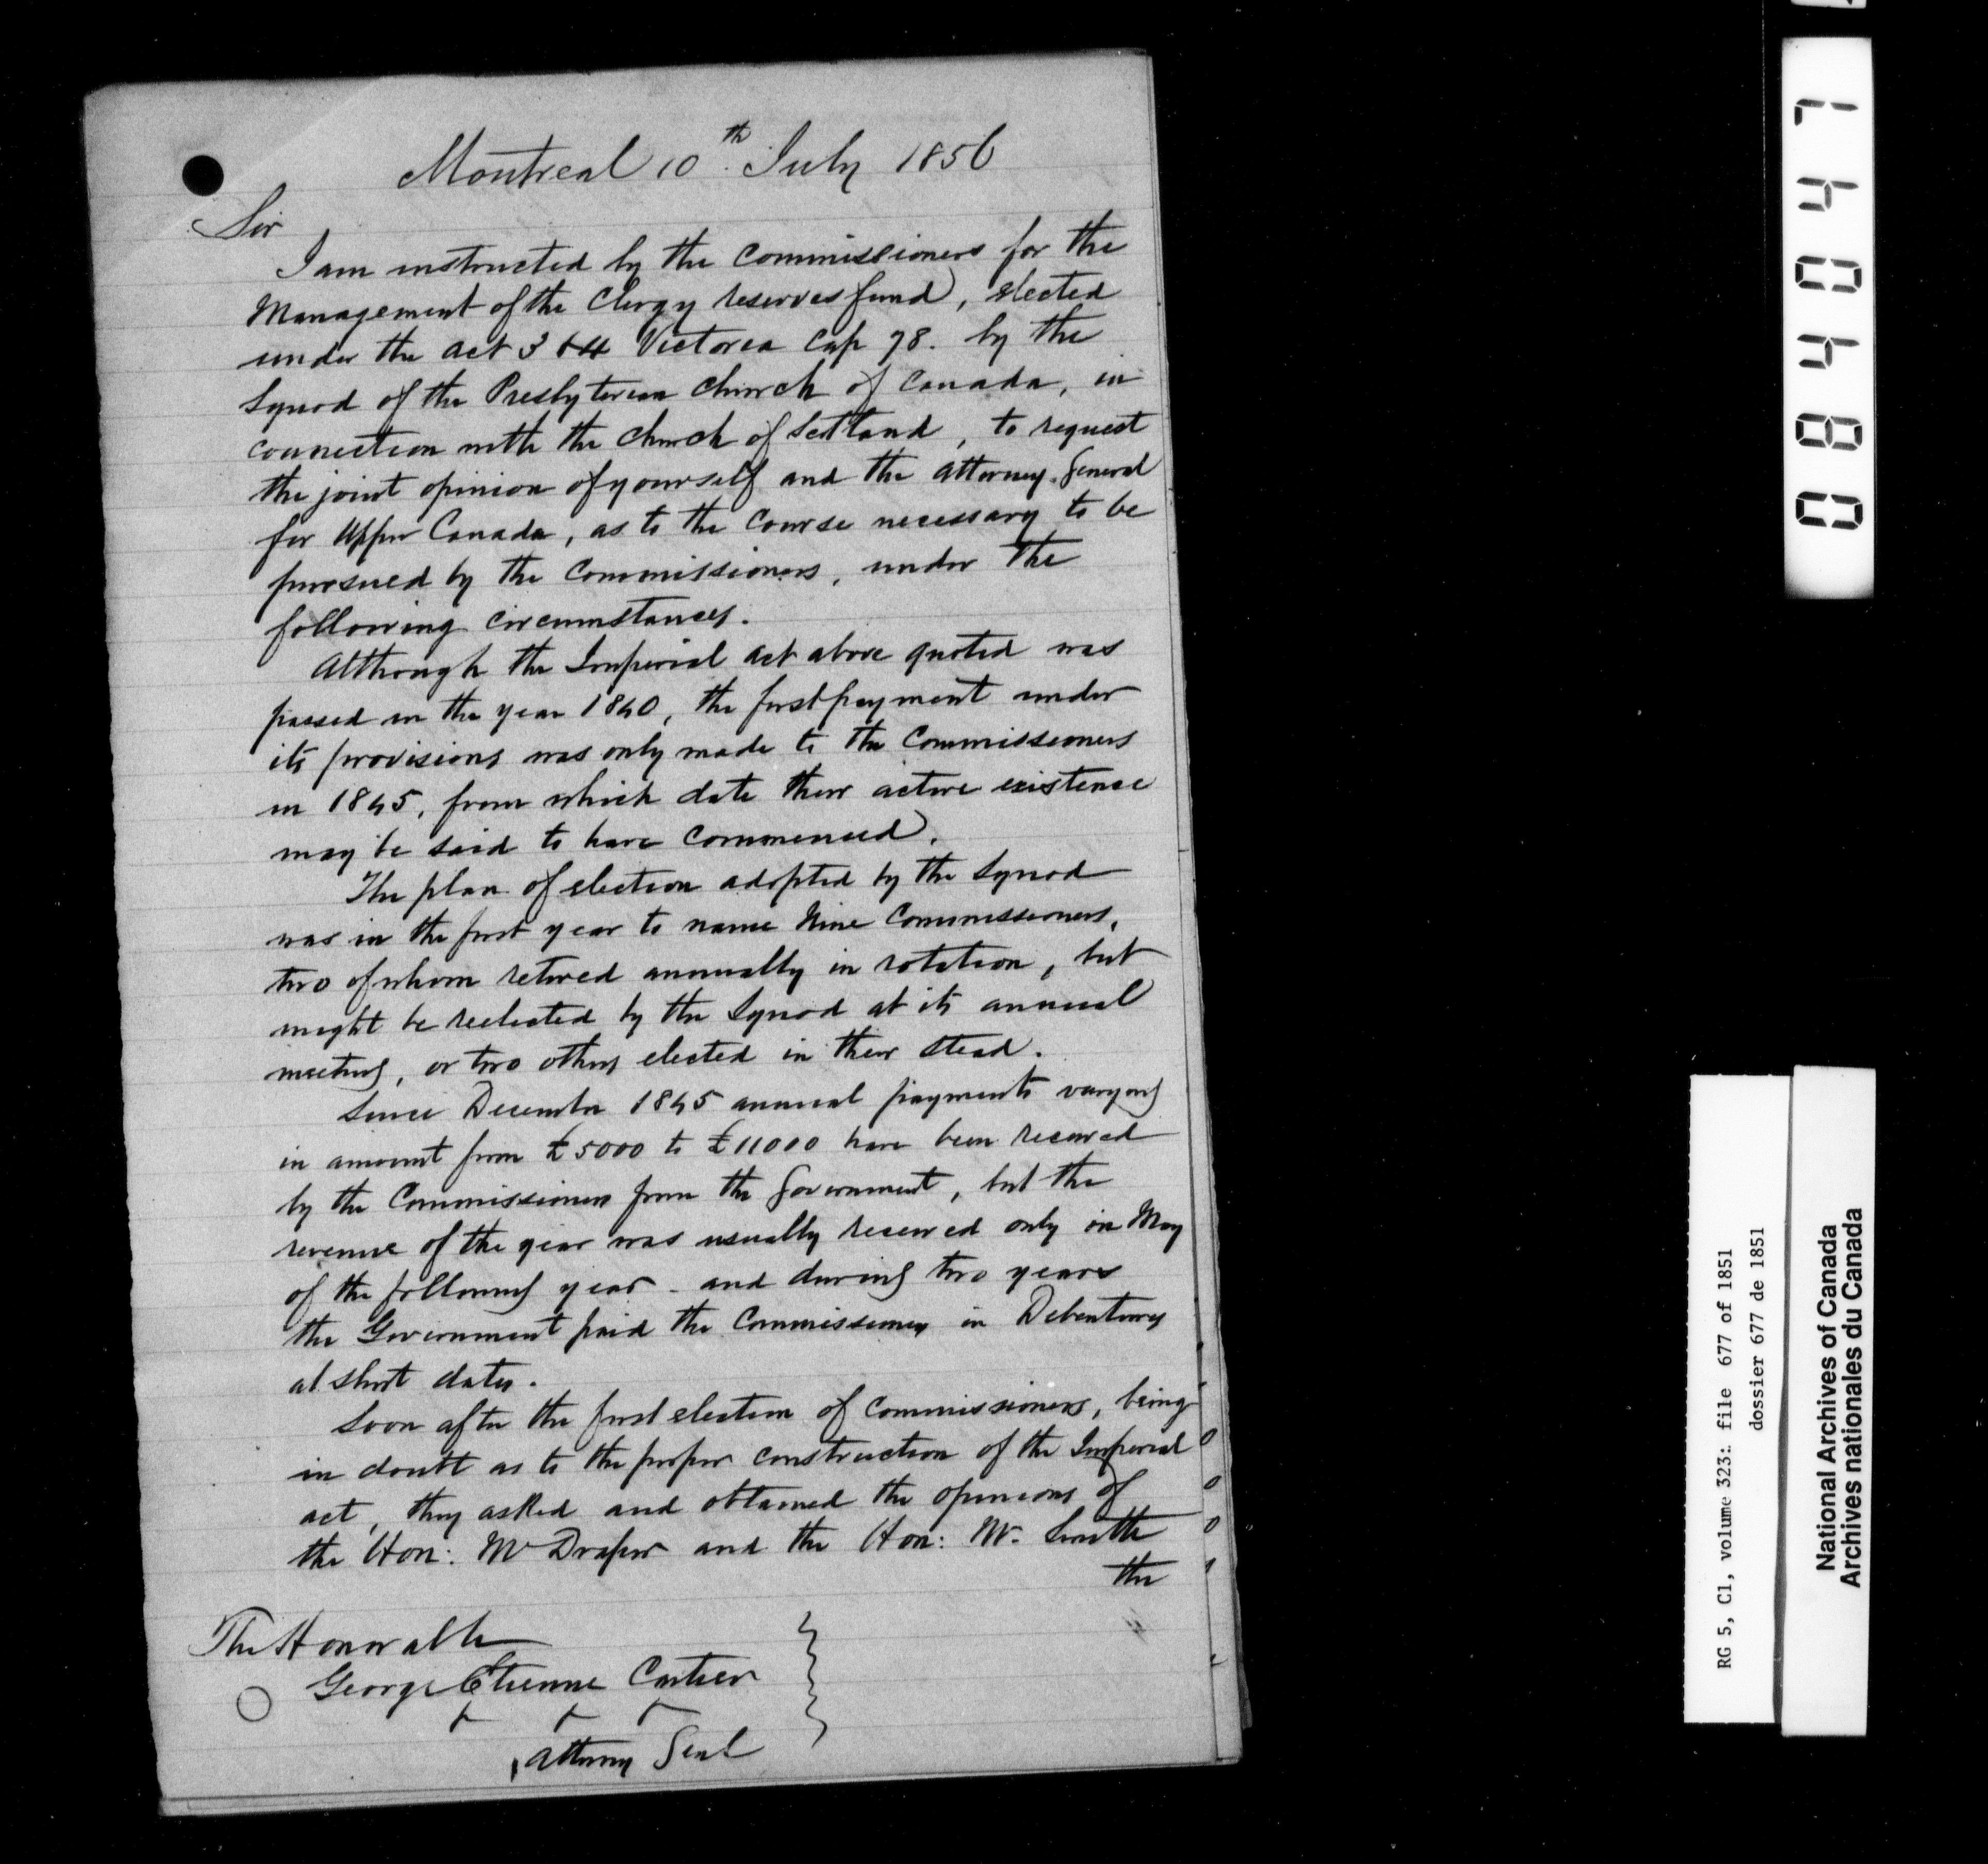 Montreal 10th July 1856
Sir
I am instructed by the Commissioners for the
Management of the Clergy reserves fund, elected
under the act 3 & 4 Victoria Cap 78. by the
Synod of the Presbyterian Church of Canada, in
connection with the Church of Scotland, to request
the joint opinion of yourself and the Attorney General
for Upper Canada, as to the course necessary to be
pursued by the Commissioners, under the
following circumstances.
Although the Imperial act above quoted was
passed in the year 1840, the first payment under
its provisions was only made to the Commissioners
in 1845, from which date their active existence
may be said to have commenced.
The plan of election adopted by the Synod
was in the first year to name Nine Commissioners,
two of whom retired annually in rotation, but
might be reelected by the Synod at its annual
meeting, or two others elected in their stead.
Since December 1845 annual payments varying
in amount from £5000 to £11000 have been received
by the Commissioners from the Government, but the
revenue of the year was usually received only in May
of the following year - and during two years
the Government paid the Commissioners in Debentures
at short dates.
Soon after the first election of Commissioners, being
in doubt as to the proper construction of the Imperial
act, they asked and obtained the opinions of
the Hon: Mr Draper and the Hon: Mr. Smith
the
The Honorable
George Etienne Cartier
Attorney Genl
0 8 4 0 4 7
RG 5, C1, volume 323: file 677 of 1851
dossier 677 de 1851
National Archives of Canada
Archives nationales du Canada